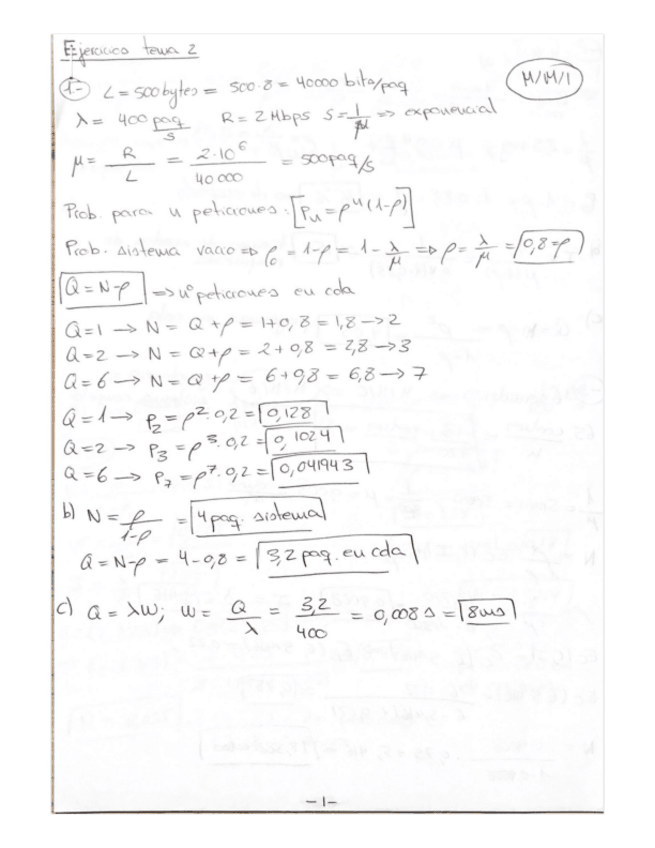 Ejercicios tema 2
1- L = 500 bytes = 500·8 = 40000 bits/paq
M/M/1
λ = 400 paq/s R = 2 Mbps S = 1/μ => exponencial
μ = R/L = 2·10^6/40000 = 500 paq/s
Prob. para n peticiones: [Pn = ρ^n (1-ρ)]
Prob. sistema vacío => P0 = 1-ρ = 1 - λ/μ => ρ = λ/μ = 0,8 = ρ
Q = N-ρ => nº peticiones en cola
Q=1 → N = Q+ρ = 1+0,8 = 1,8 → 2
Q=2 → N = Q+ρ = 2+0,8 = 2,8 → 3
Q=6 → N = Q+ρ = 6+0,8 = 6,8 → 7
Q=1 → P2 = ρ^2·0,2 = 0,128
Q=2 → P3 = ρ^3·0,2 = 0,1024
Q=6 → P7 = ρ^7·0,2 = 0,041943
b) N = ρ/1-ρ = 4 paq. sistema
Q = N-ρ = 4-0,8 = 3,2 paq. en cola
c) Q = λW; W = Q/λ = 3,2/400 = 0,008 s = 8ms
-1-